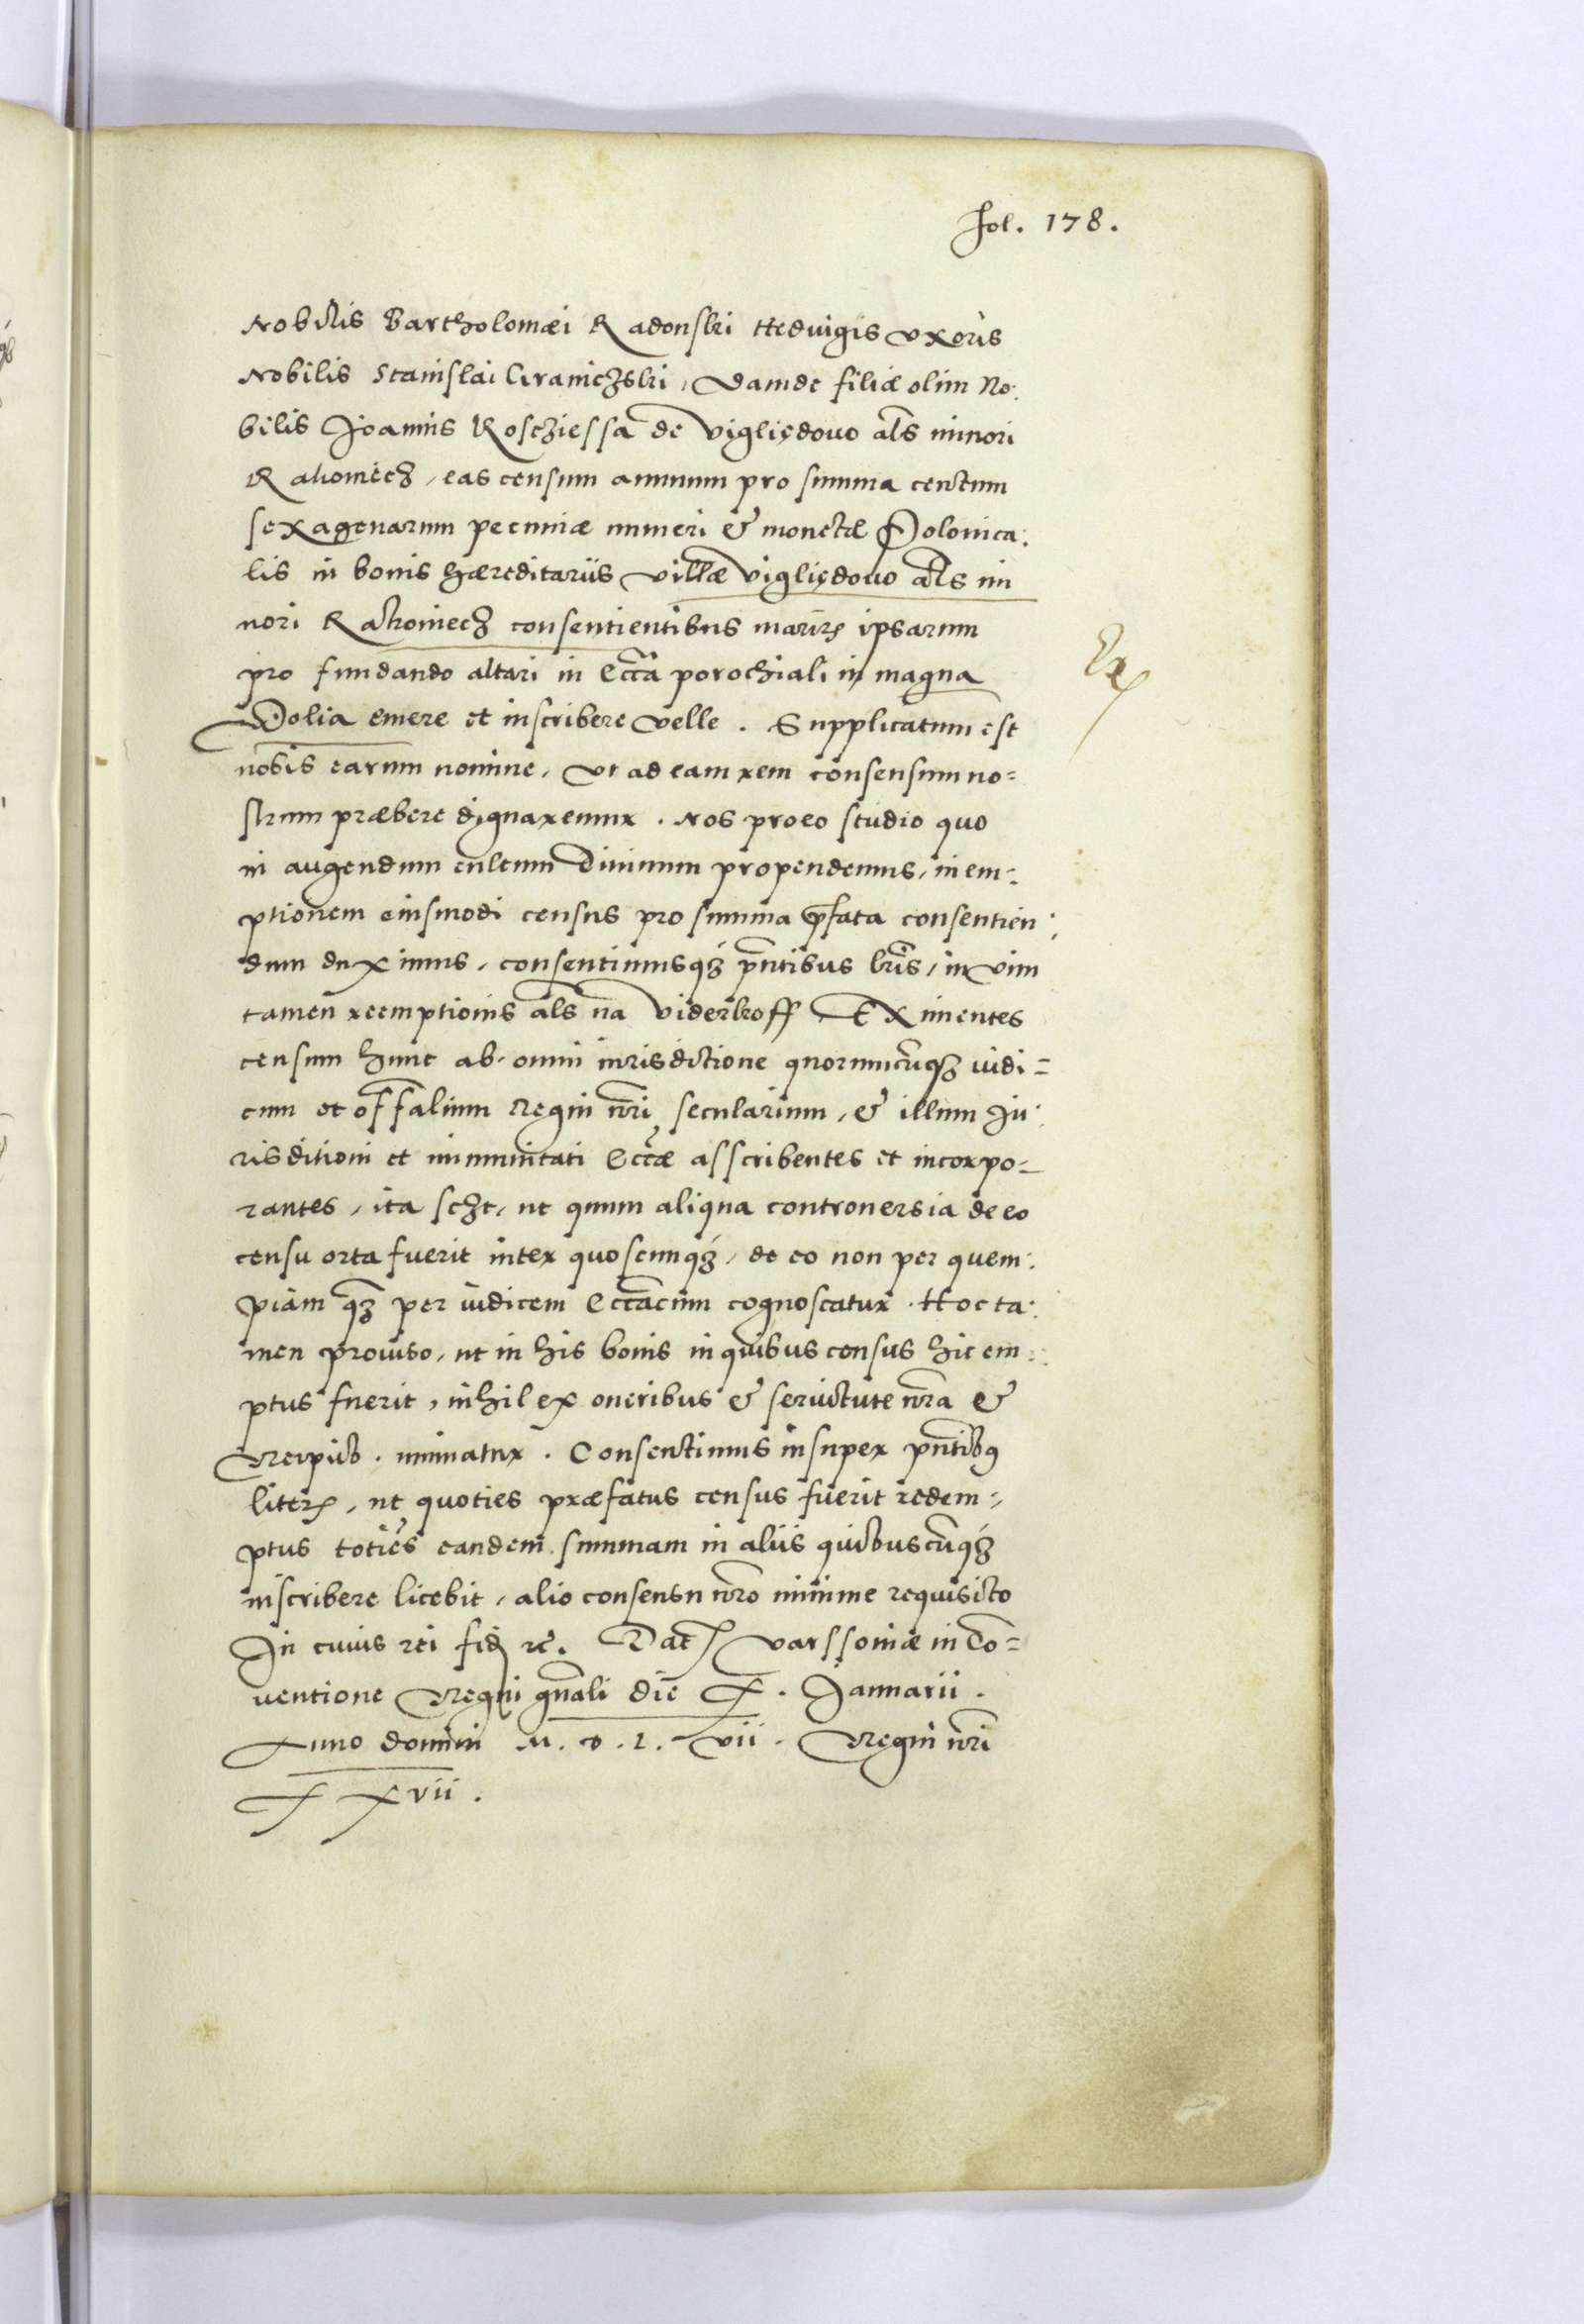 fol. 178.
Nobilis Bartholomæi Radonski Hedvigis uxoris
Nobilis Stanislai Graniczski, Damde filiæ olim No:
bilis Joannis Roschiessa de Vigliędovo als minori
Rakoniecz, eas censum annuum pro summa centum
sexagenarum pecuniæ numeri & monetæ Polonica:
lis in bonis hæreditariis villæ Vigliędovo als mi
nori Rakoniecz consentientibus marits ipsarum
pro fundando altari in Eccla porochiali in magna
Volia emere et inscribere velle. Supplicatum est
nobis earum nomine, ut ad eam rem consensum no=
strum præbere dignaremur. Nos pro eo studio quo
in augendum cultum Divinum propendemus, in em:
ptionem eiusmodi census pro summa pfata consentien:
dum duximus, consentimusq3 pntibus lris, in vim
tamen reemptionis als na Viderkoff, Eximentes
censum hunc ab omni iurisdictione quorumcunq3 iudi=
cum et offalium Regni nri secularium, & illum Ju:
risditioni et immunitati Eccæ asscribentes et incorpo=
rantes, ita sczt, ut quum aliqua controuersia de eo
censu orta fuerit inter quoscunq3, de eo non per quem:
piam q3 per iudicem Eccacum cognoscatur. Hoc ta:
men proviso, ut in his bonis in quibus census hic em:
ptus fuerit, nihil ex oneribus & servitute nra &
Reipub. minuatur. Consentimus insuper pntibus
liters, ut quoties præfatus census fuerit redem=
ptus toties eandem summam in aliis quibuscunq3
inscribere licebit, alio consensu nro minime requisito
In cuius rei fid rc. Dat Varssoviæ in Con=
ventione Regni gnali die X. Januarii.
Anno domini M. D. L. vii. Regni nri
XXvii.